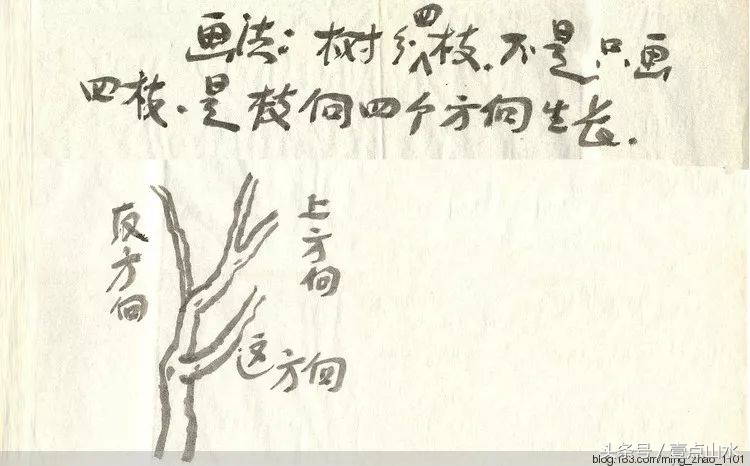 画法：树分四枝．不是只画
四枝．是枝向四个方向生长．
反方向
上方向
这方向
头条号／亮点山水
blog.163.com/ming_zhao_1101